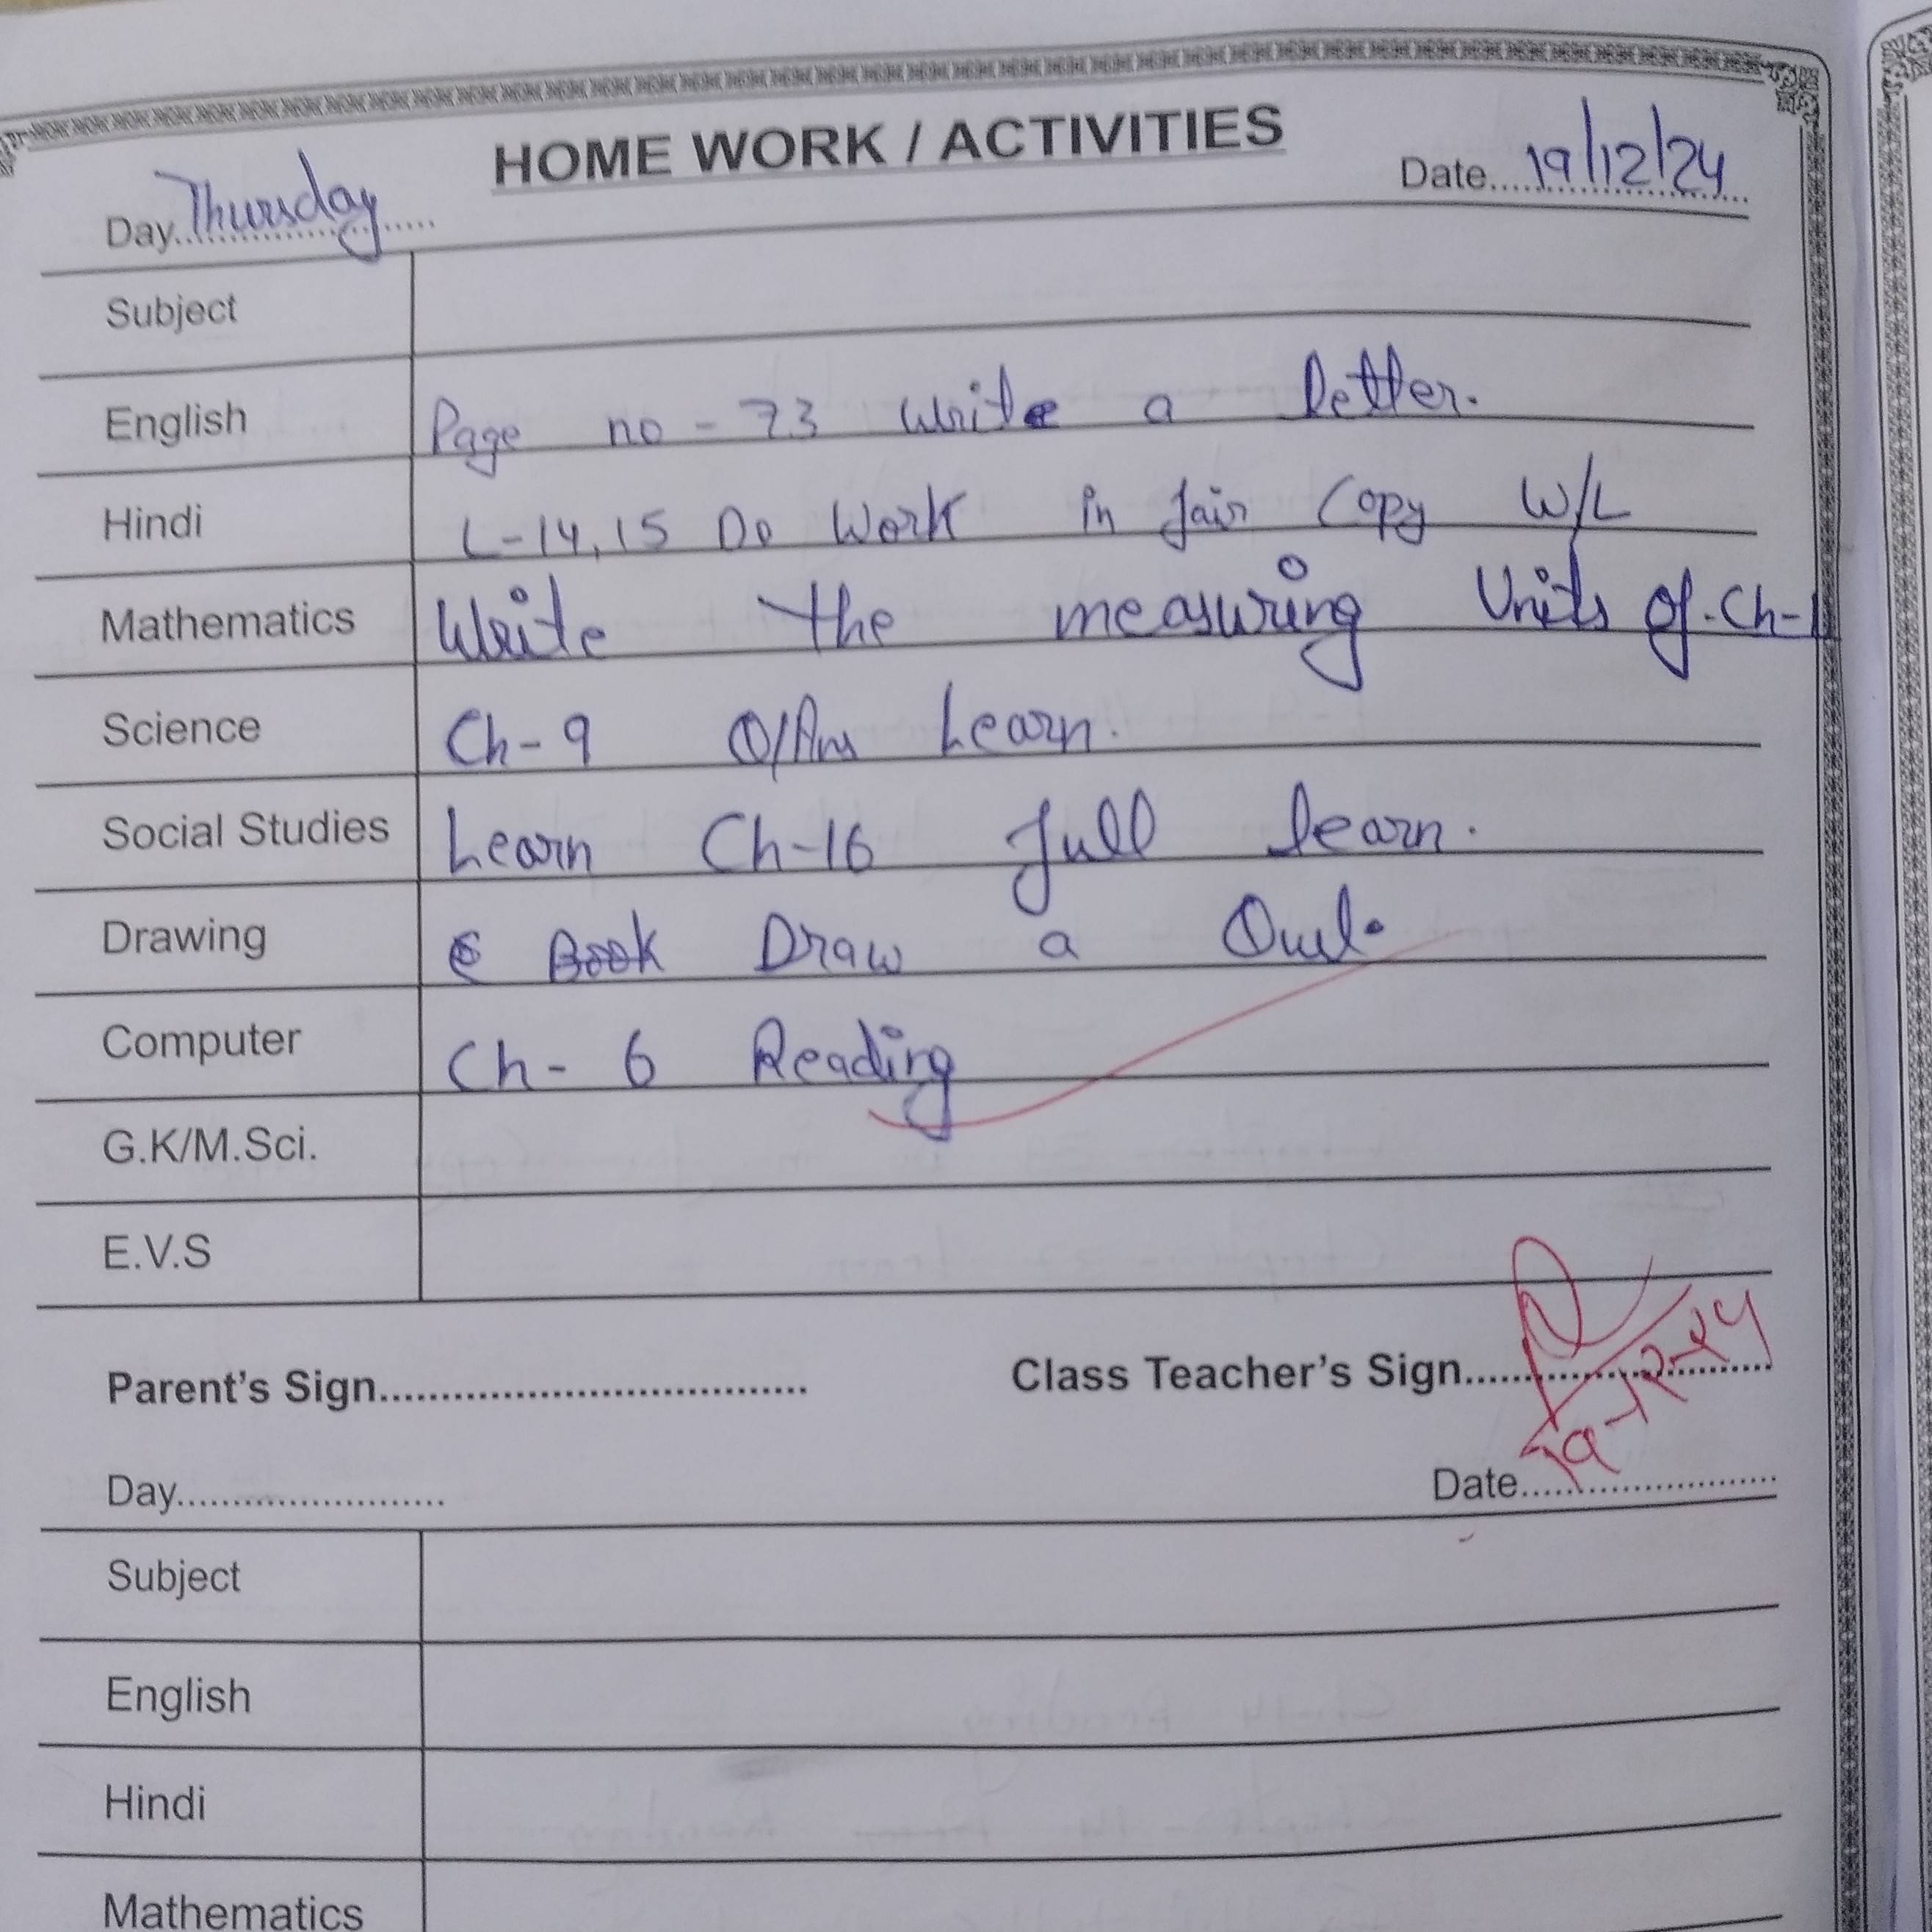 HOME WORK / ACTIVITIES
Day Thursday Date 19/12/24
Subject
English Page no - 73 Write a letter.
Hindi L-14,15 Do Work in fair Copy W/L
Mathematics Write the measuring Units of. Ch-1
Science Ch-9 Q/Ans Learn.
Social Studies Learn Ch-16 full learn.
Drawing Book Draw a Owl.
Computer Ch-6 Reading
G.K/M.Sci.
E.V.S
Parent's Sign Class Teacher's Sign
19-12-24
Day Date
Subject
English
Hindi
Mathematics